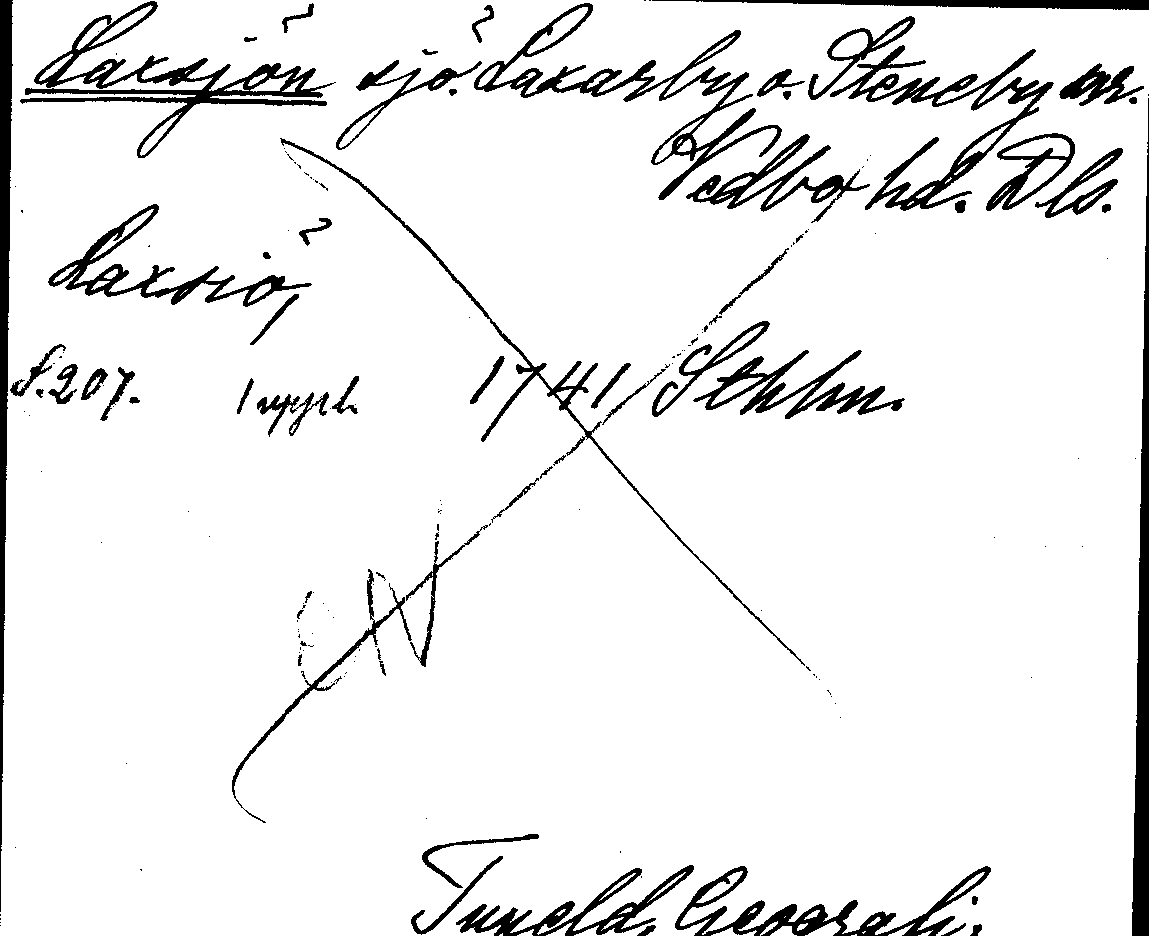 Laxsjön sjö. Laxarby o. Steneby snr.
Vedbo hd. Dls.
Laxsiö,
S. 207. 1 uppl. 1741 Sthlm.
EN
Tuneld, Geografi.